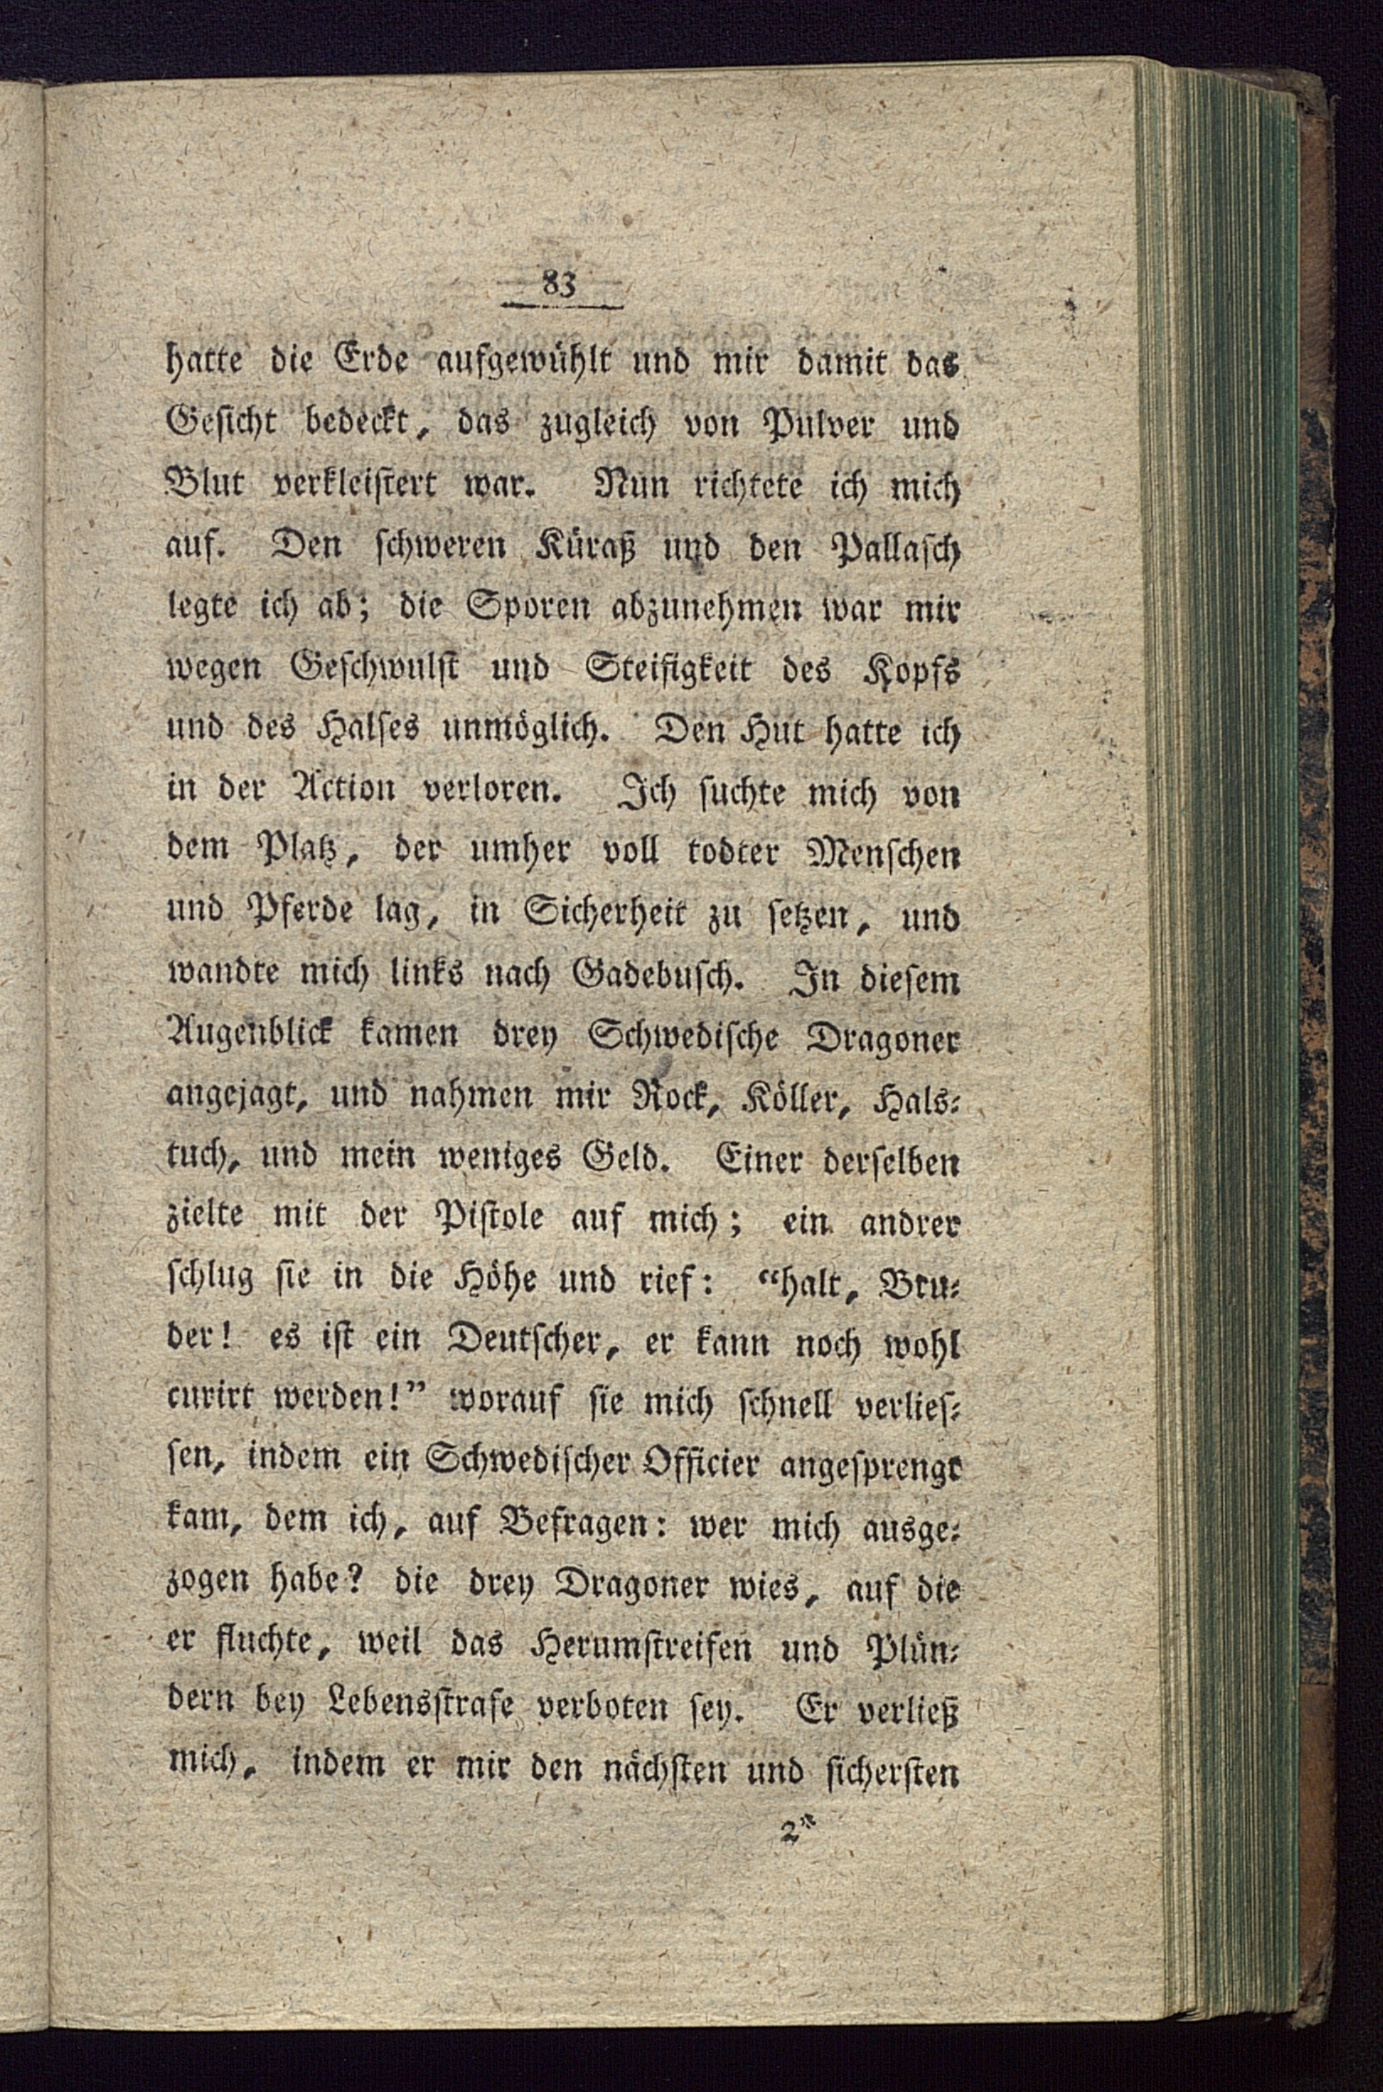 83
hatte die Erde aufgewühlt und mir damit das
Gesicht bedeckt, das zugleich von Pulver und
Blut verkleistert war. Nun richtete ich mich
auf. Den schweren Küraß und den Pallasch
legte ich ab; die Sporen abzunehmen war mir
wegen Geschwulst und Steifigkeit des Kopfs
und des Halses unmöglich. Den Hut hatte ich
in der Action verloren. Ich suchte mich von
dem Platz, der umher voll todter Menschen
und Pferde lag, in Sicherheit zu setzen, und
wandte mich links nach Gadebusch. In diesem
Augenblick kamen drey Schwedische Dragoner
angejagt, und nahmen mir Rock, Köller, Hals-
tuch, und mein weniges Geld. Einer derselben
zielte mit der Pistole auf mich; ein andrer
schlug sie in die Höhe und rief: “halt, Bru-
der! es ist ein Deutscher, er kann noch wohl
curirt werden!” worauf sie mich schnell verlies-
sen, indem ein Schwedischer Officier angesprengt
kam, dem ich, auf Befragen: wer mich ausge-
zogen habe? die drey Dragoner wies, auf die
er fluchte, weil das Herumstreifen und Plün-
dern bey Lebensstrafe verboten sey. Er verließ
mich, indem er mir den nächsten und sichersten
2*